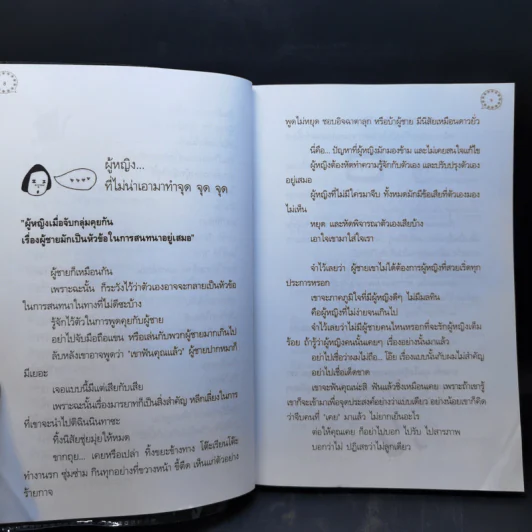 ผู้หญิง...
ที่ไม่น่าเอามาทำจุด จุด จุด
"ผู้หญิงเมื่อจับกลุ่มคุยกัน
เรื่องผู้ชายมักเป็นหัวข้อในการสนทนาอยู่เสมอ"
ผู้ชายก็เหมือนกัน
เพราะฉะนั้น ก็ระวังไว้ว่าตัวเองอาจจะกลายเป็นหัวข้อ
ในการสนทนาในทางที่ไม่ดีซะบ้าง
รู้จักไว้ตัวในการพูดคุยกับผู้ชาย
อย่าไปจับมือถือแขน หรือเล่นกับพวกผู้ชายมากเกินไป
ลับหลังเขาอาจพูดว่า "เขาฟันคุณแล้ว" ผู้ชายปากหมาก็
มีเยอะ
เจอแบบนี้มีแต่เสียกับเสีย
เพราะฉะนั้นเรื่องมารยาทก็เป็นสิ่งสำคัญ หลีกเลี่ยงในการ
ที่เขาจะนำไปติฉินนินทาซะ
ทิ้งนิสัยซุ่ยมุ่ยให้หมด
ขากถุย... เคยหรือเปล่า ทิ้งขยะข้างทาง โต๊ะเรียนโต๊ะ
ทำงานรก ซุ่มซ่าม กินทุกอย่างที่ขวางหน้า ขี้ตืด เห็นแก่ตัวอย่าง
ร้ายกาจ
พูดไม่หยุด ชอบอิจฉาตาลุก หรือบ้าผู้ชาย มีนิสัยเหมือนดาวยั่ว
นี่คือ... ปัญหาที่ผู้หญิงมักมองข้าม และไม่เคยสนใจแก้ไข
ผู้หญิงต้องหัดทำความรู้จักกับตัวเอง และปรับปรุงตัวเอง
อยู่เสมอ
ผู้หญิงที่ไม่มีใครมาจีบ ทั้งหมดมักมีข้อเสียที่ตัวเองมอง
ไม่เห็น
หยุด และหัดพิจารณาตัวเองเสียบ้าง
เอาใจเขามาใส่ใจเรา
จำไว้เลยว่า ผู้ชายเขาไม่ได้ต้องการผู้หญิงที่สวยเริ่ดทุก
ประการหรอก
เขาจะภาคภูมิใจที่มีผู้หญิงดีๆ ไม่มีมลทิน
คือผู้หญิงที่ไม่ง่ายจนเกินไป
จำไว้เลยว่าไม่มีผู้ชายคนไหนหรอกที่จะรักผู้หญิงเต็ม
ร้อย ถ้ารู้ว่าผู้หญิงคนนั้นเคยๆ เรื่องอย่างนั้นมาแล้ว
อย่าไปเชื่อว่าผมไม่ถือ.. โอ๊ย เรื่องแบบนั้นกับผมไม่สำคัญ
อย่าไปเชื่อเด็ดขาด
เขาจะฟันคุณน่ะสิ ฟันแล้วซิ่งเหมือนเคย เพราะถ้าเขารู้
เขาก็จะเข้ามาเพื่อจุดประสงค์อย่างว่าแบบเดียว อย่างน้อยเขาก็คิด
ว่าจีบคนที่ "เคย" มาแล้ว ไม่ยากเย็นอะไร
ต่อให้คุณเคย ก็อย่าไปบอก ไปรับ ไปสารภาพ
บอกว่าไม่ ปฏิเสธว่าไม่ลูกเดียว